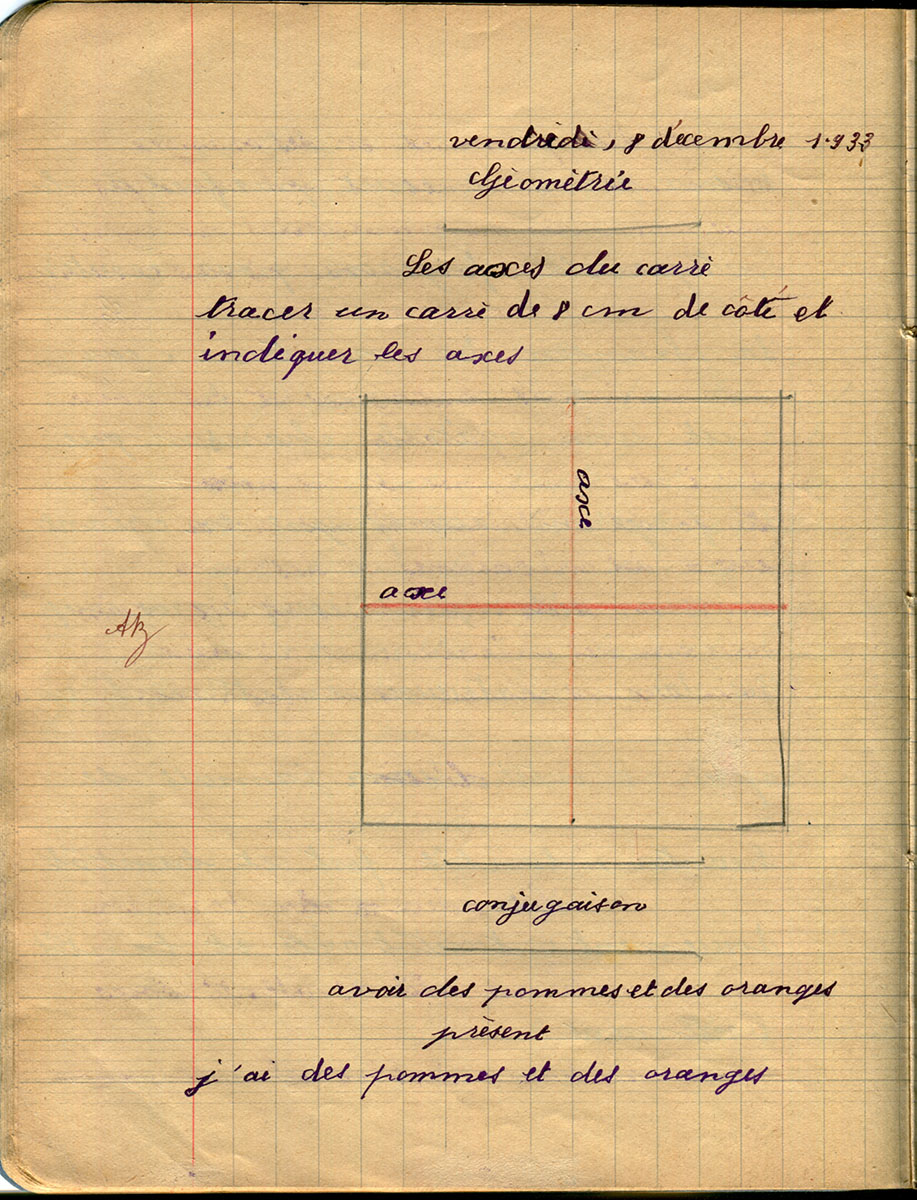 vendredi, 8 décembre 1933
Géométrie
Les axes du carré
tracer un carré de 8 cm de côté et
indiquer les axes
axe
axe
conjugaison
avoir des pommes et des oranges
présent
j'ai des pommes et des oranges